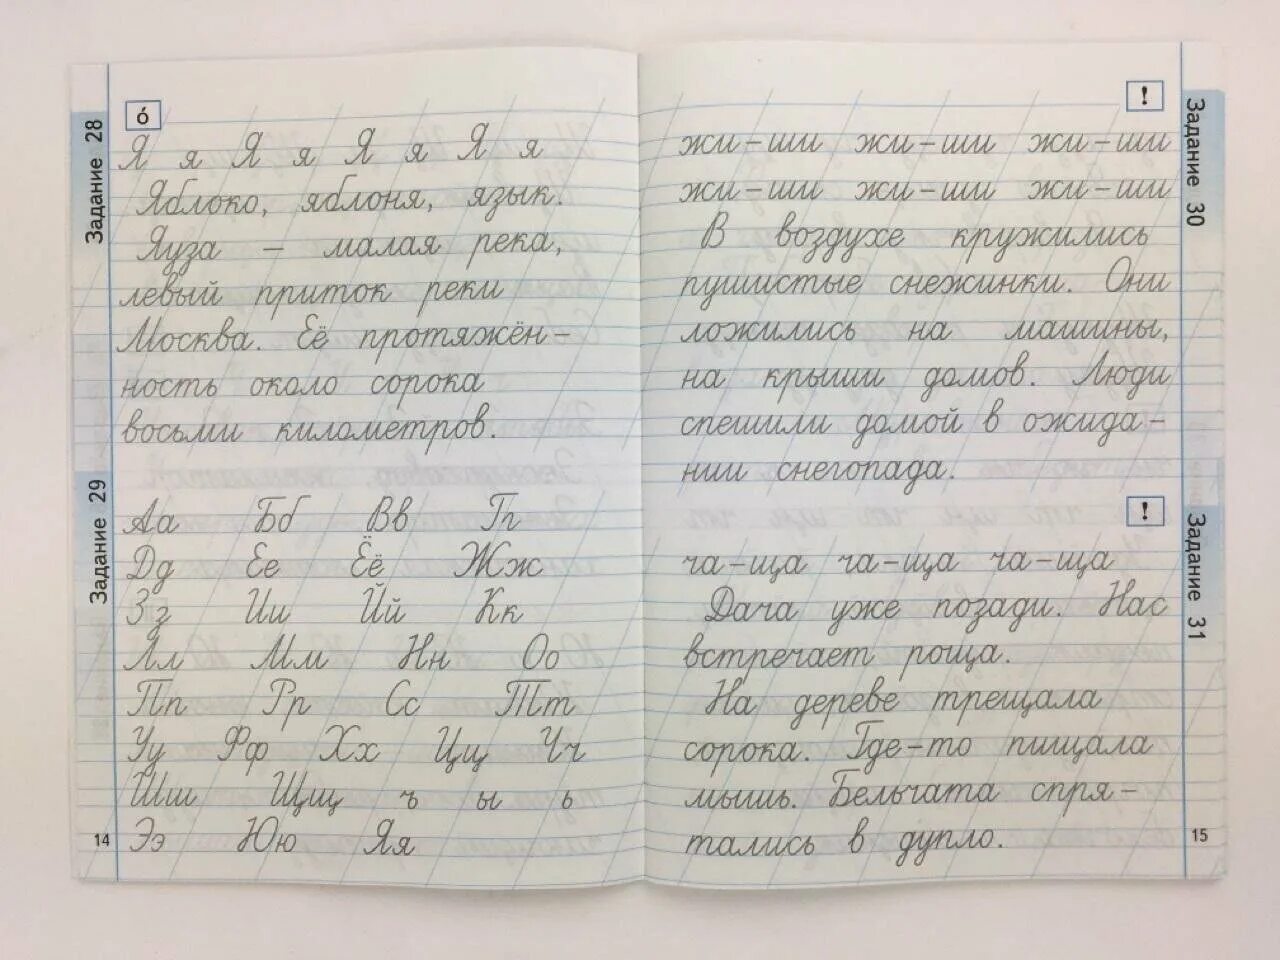 Задание 28
о́
Я я Я я Я я Я я
Яблоко, яблоня, язык.
Яуза – малая река,
левый приток реки
Москва. Её протяжён-
ность около сорока
восьми километров.
Задание 29
Аа Бб Вв Гг
Дд Ее Ёё Жж
Зз Ии Йй Кк
Лл Мм Нн Оо
Пп Рр Сс Тт
Уу Фф Хх Цц Чч
Шш Щщ ъ ы ь
Ээ Юю Яя
14
!
Задание 30
жи-ши жи-ши жи-ши
жи-ши жи-ши жи-ши
В воздухе кружились
пушистые снежинки. Они
ложились на машины,
на крыши домов. Люди
спешили домой в ожида-
нии снегопада.
!
Задание 31
ча-ща ча-ща ча-ща
Дача уже позади. Нас
встречает роща.
На дереве трещала
сорока. Где-то пищала
мышь. Бельчата спря-
тались в дупло.
15